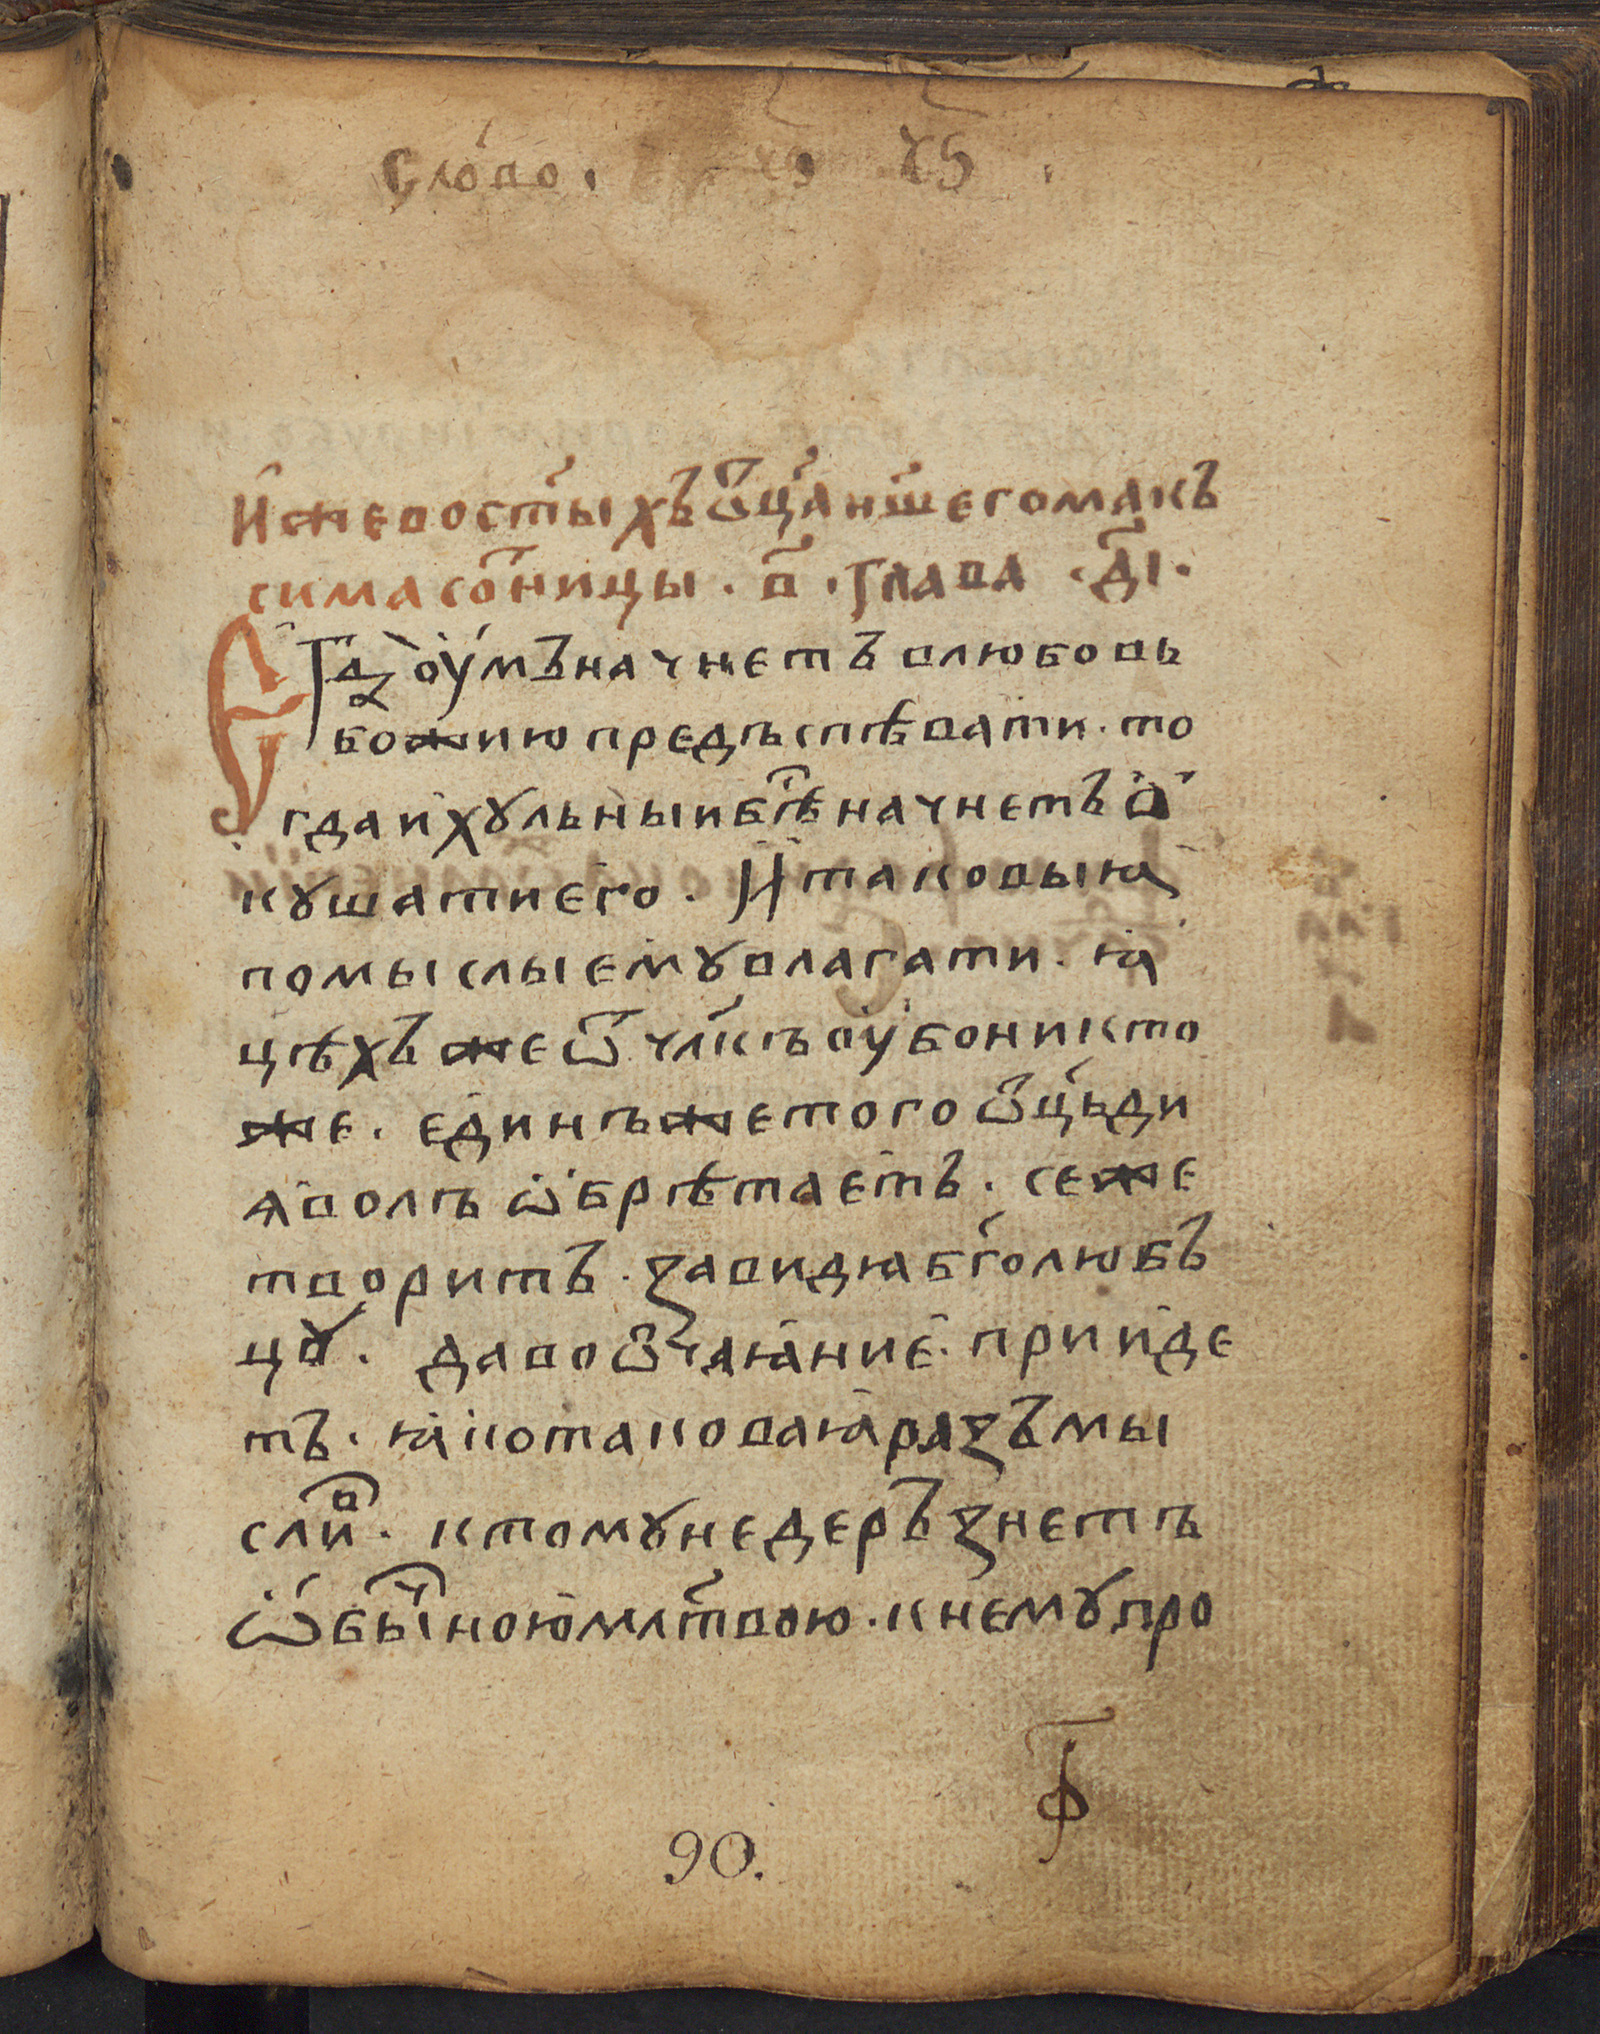 Сло́во . ꙋѕ .
И҆жевост҃ыхъѿц҃анш҃егомаѯ
симасоⷮницы . в҃ . глава . д҃і .
Егⷣаоу҆мъначнетъвлюбовь
божиюпредъспѣвати . то
гдаихꙋльныибѣⷭ҇начнетъѡ҆
кꙋшатиего . И҆таковыꙗ
помыслыемꙋвлагати . ꙗ҆
цѣхъжеѿчл҃къоу҆боникто
же . е҆динъжетогоѿц҃ьди
ꙗволъѡ҆брѣтаетъ . семе
творитъ . завидꙗбг҃олюбъ
цꙋ . давоѿчаꙗ҆ние . прииде
тъ . ꙗ҆котаковаꙗ҆разъмы
сли́ⷡ . ктомꙋнедеръзнетъ
ѡ҆быⷱ҇ноюмлт҃вою . кнемꙋпро
90.